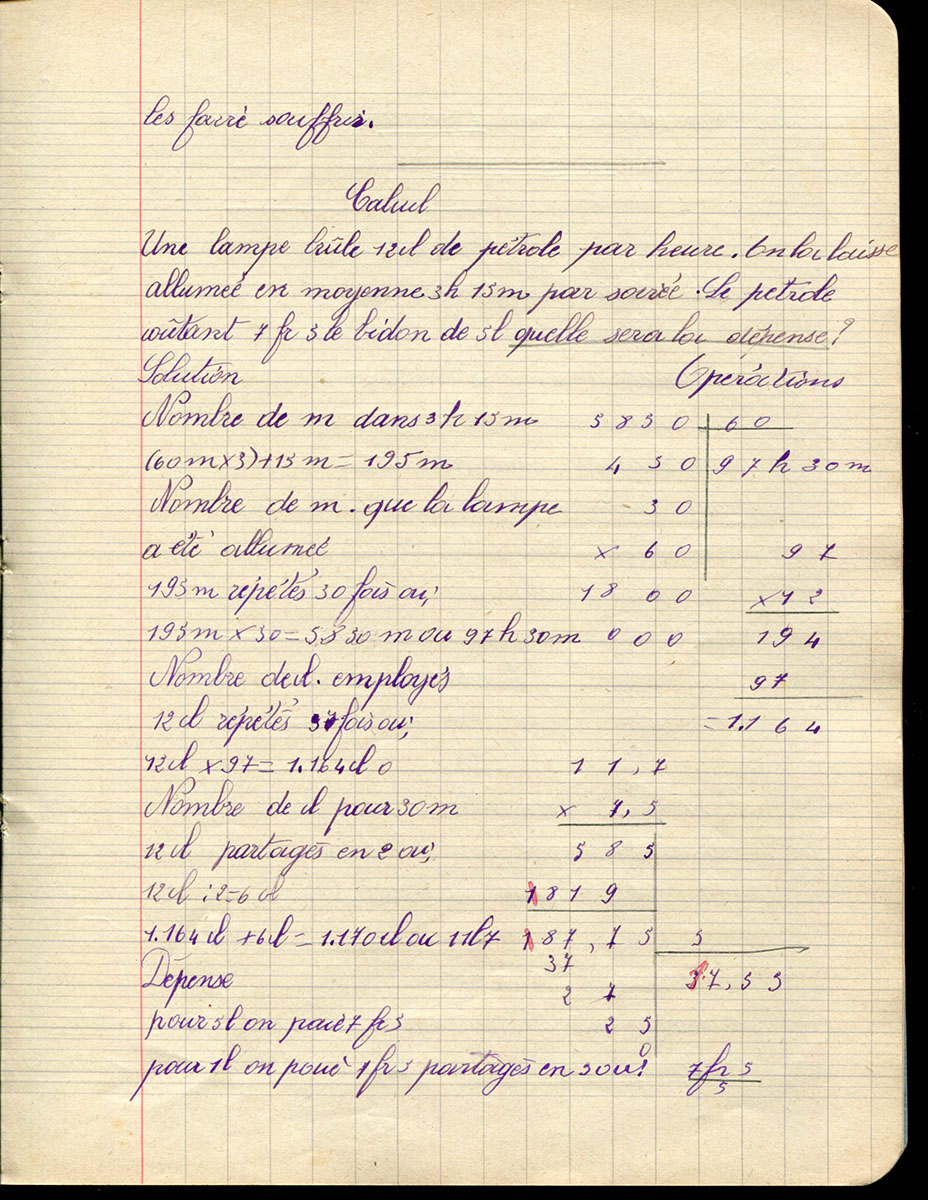 les faire souffrir.
Calcul
Une lampe brûle 12cl de pétrole par heure. On la laisse
allumée en moyenne 3h 15m par soirée. Le pétrole
coûtant 7 fr 5 le bidon de 5l quelle sera la dépense?
Solution
Opérations
Nombre de m dans 3h 15m
5 8 5 0 | 6 0
(60m×3)+15m = 195m
4 5 0 | 9 7 h 30m
Nombre de m. que la lampe
3 0
a été allumée
× 6 0
9 7
195m répétés 30 fois ou;
1 8 0 0
× 1 2
195m × 30 = 5.850 m ou 97h 30m
0 0 0
1 9 4
Nombre de cl. employés
9 7
12cl répétés 97 fois ou;
= 1.1 6 4
12cl × 97 = 1.164cl
1 1, 7
Nombre de cl pour 30m
× 7, 5
12cl partagés en 2 ou;
5 8 5
12cl : 2 = 6cl
1 8 1 9
1.164cl + 6cl = 1.170cl ou 11l7
1 8 7, 7 5 | 5
3 7
Dépense
3 7, 5 5
2 7
pour 5l on paie 7 fr 5
2 5
0
pour 1l on paie 7fr 5 partagés en 5 ou:
7fr 5
5